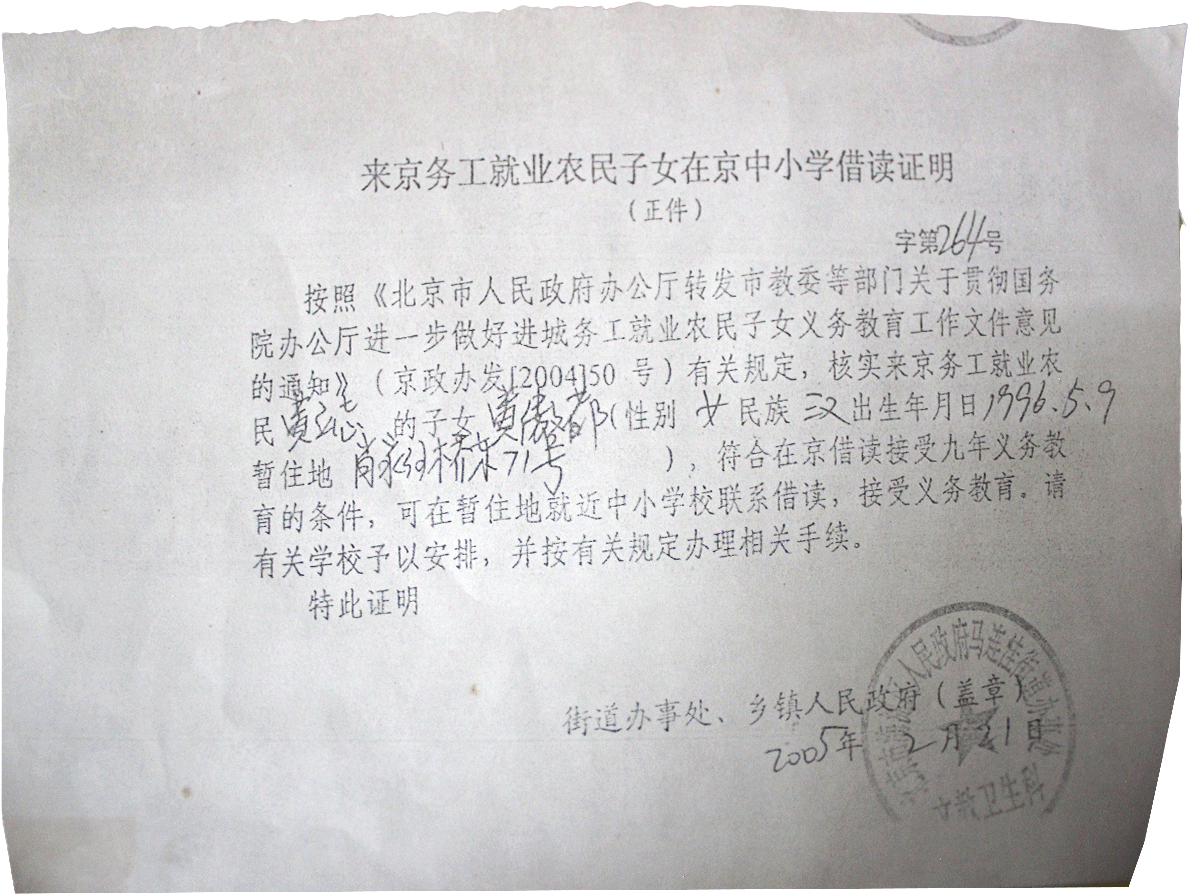 来京务工就业农民子女在京中小学借读证明
（正件）
字第264号
按照《北京市人民政府办公厅转发市教委等部门关于贯彻国务
院办公厅进一步做好进城务工就业农民子女义务教育工作文件意见
的通知》（京政办发[2004]50 号）有关规定，核实来京务工就业农
民 黄 的子女 黄 都（性别 女 民族 汉 出生年月日1996.5.9
暂住地 肖家河桥东71号 ），符合在京借读接受九年义务教
育的条件，可在暂住地就近中小学校联系借读，接受义务教育。请
有关学校予以安排，并按有关规定办理相关手续。
特此证明
街道办事处、乡镇人民政府（盖章）
2005年 2月21日
人民政府马连洼街道办事处
文教卫生科